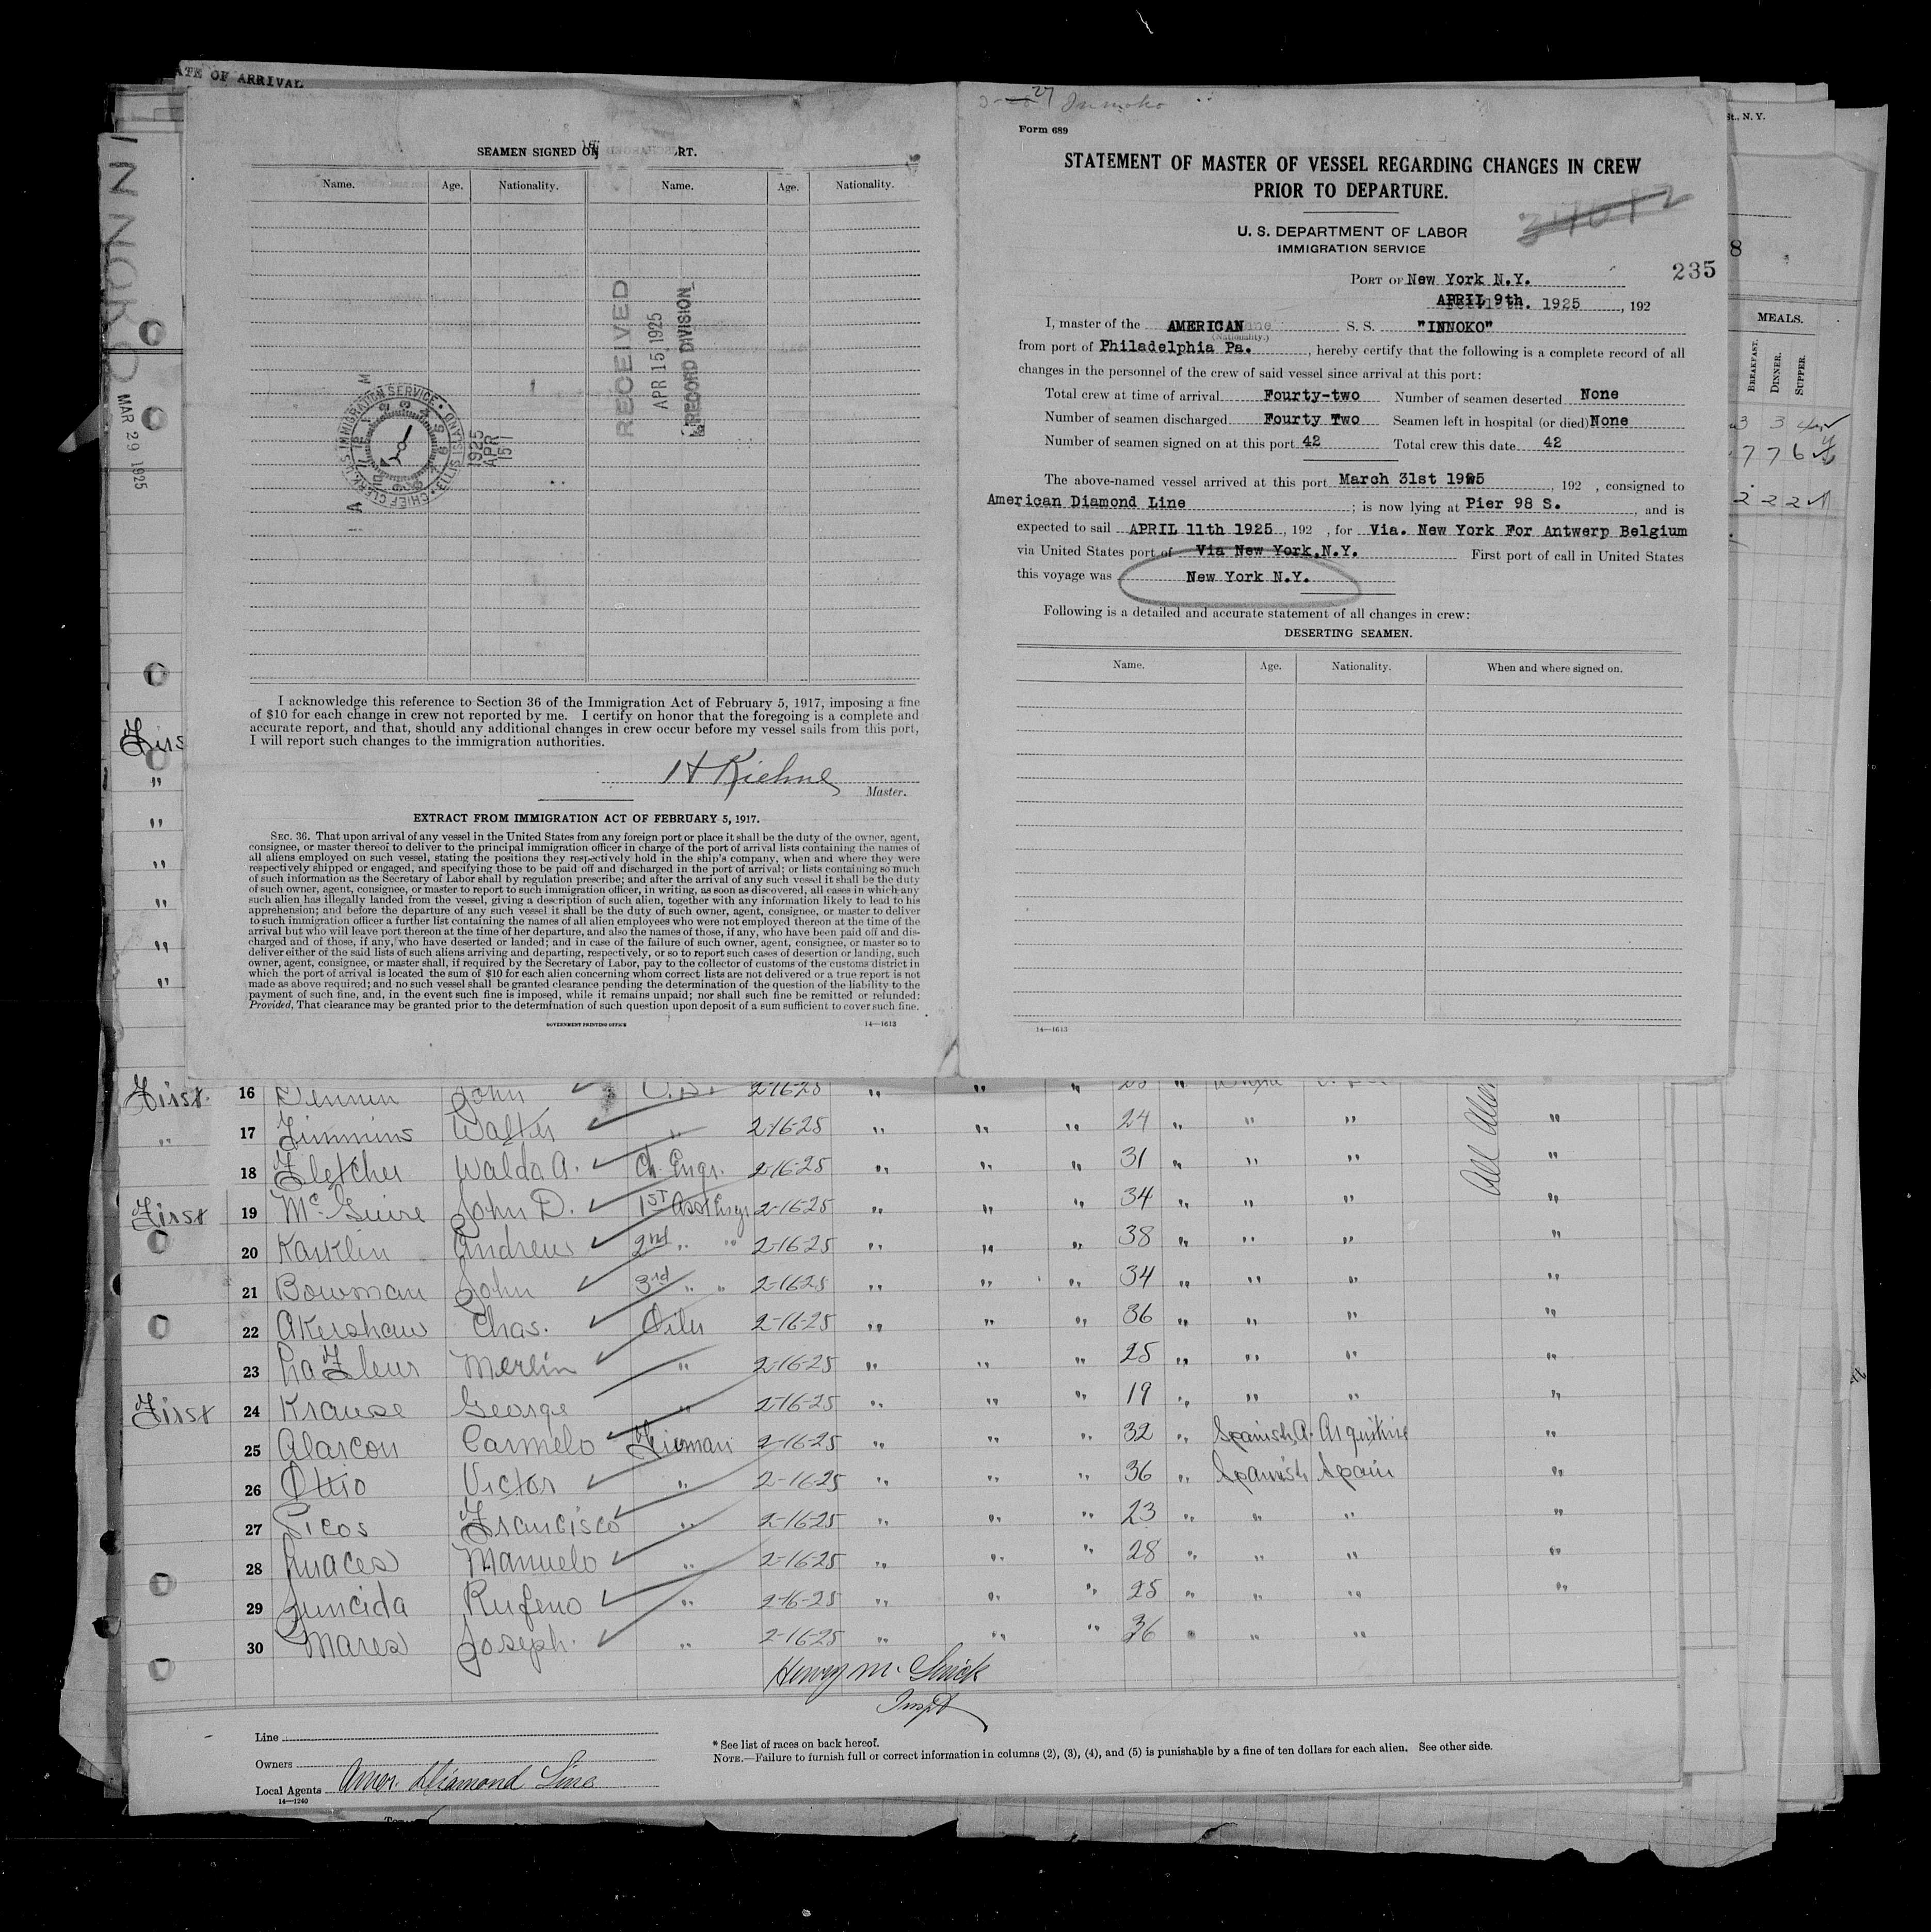 ATE OF ARRIVAL
St., N. Y.
INNOKO
MAR 29 1925
SEAMEN SIGNED ON RT.
Name. Age. Nationality. Name. Age. Nationality.
RECEIVED
APR 15 1925
RECORD DIVISION
CHIEF CLERK, U.S. IMMIGRATION SERVICE • ELLIS ISLAND
1925
APR
15
I acknowledge this reference to Section 36 of the Immigration Act of February 5, 1917, imposing a fine
of $10 for each change in crew not reported by me. I certify on honor that the foregoing is a complete and
accurate report, and that, should any additional changes in crew occur before my vessel sails from this port,
I will report such changes to the immigration authorities.
H Kiehne
Master.
EXTRACT FROM IMMIGRATION ACT OF FEBRUARY 5, 1917.
SEC. 36. That upon arrival of any vessel in the United States from any foreign port or place it shall be the duty of the owner, agent,
consignee, or master thereof to deliver to the principal immigration officer in charge of the port of arrival lists containing the names of
all aliens employed on such vessel, stating the positions they respectively hold in the ship's company, when and where they were
respectively shipped or engaged, and specifying those to be paid off and discharged in the port of arrival; or lists containing so much
of such information as the Secretary of Labor shall by regulation prescribe; and after the arrival of any such vessel it shall be the duty
of such owner, agent, consignee, or master to report to such immigration officer, in writing, as soon as discovered, all cases in which any
such alien has illegally landed from the vessel, giving a description of such alien, together with any information likely to lead to his
apprehension; and before the departure of any such vessel it shall be the duty of such owner, agent, consignee, or master to deliver
to such immigration officer a further list containing the names of all alien employees who were not employed thereon at the time of the
arrival but who will leave port thereon at the time of her departure, and also the names of those, if any, who have been paid off and dis-
charged and of those, if any, who have deserted or landed; and in case of the failure of such owner, agent, consignee, or master so to
deliver either of the said lists of such aliens arriving and departing, respectively, or so to report such cases of desertion or landing, such
owner, agent, consignee, or master shall, if required by the Secretary of Labor, pay to the collector of customs of the customs district in
which the port of arrival is located the sum of $10 for each alien concerning whom correct lists are not delivered or a true report is not
made as above required; and no such vessel shall be granted clearance pending the determination of the question of the liability to the
payment of such fine, and, in the event such fine is imposed, while it remains unpaid; nor shall such fine be remitted or refunded:
Provided, That clearance may be granted prior to the determination of such question upon deposit of a sum sufficient to cover such fine.
GOVERNMENT PRINTING OFFICE 14—1613
27 Innoko
Form 689
STATEMENT OF MASTER OF VESSEL REGARDING CHANGES IN CREW
PRIOR TO DEPARTURE.
U. S. DEPARTMENT OF LABOR
IMMIGRATION SERVICE
235
PORT OF New York N.Y.
APRIL 9th. 1925, 192
I, master of the AMERICAN S. S. "INNOKO"
(Nationality.)
from port of Philadelphia Pa., hereby certify that the following is a complete record of all
changes in the personnel of the crew of said vessel since arrival at this port:
Total crew at time of arrival Fourty-two Number of seamen deserted None
Number of seamen discharged Fourty Two Seamen left in hospital (or died) None
Number of seamen signed on at this port 42 Total crew this date 42
The above-named vessel arrived at this port March 31st 1925, 192 , consigned to
American Diamond Line ; is now lying at Pier 98 S. , and is
expected to sail APRIL 11th 1925, 192 , for Via. New York For Antwerp Belgium
via United States port of Via New York.N.Y. First port of call in United States
this voyage was New York N.Y.
Following is a detailed and accurate statement of all changes in crew:
DESERTING SEAMEN.
Name. Age. Nationality. When and where signed on.
14—1613
8
MEALS.
BREAKFAST. DINNER. SUPPER.
3 3 4
7 7 6
2 2 2
First 16 Dennin John 2-16-25 " " "
" 17 Timmins Walter " 2-16-25 " " " 24 " " " "
18 Fletcher Waldo A. Ch. Engr. 2-16-25 " " " 31 " " " "
First 19 McGuire John D. 1ST Asst Engr 2-16-25 " " " 34 " " " "
20 Karklin Andrew 2nd " " 2-16-25 " " " 38 " " " "
21 Bowman John 3rd " " 2-16-25 " " " 34 " " " "
22 Akershaw Chas. Oiler 2-16-25 " " " 36 " " " "
23 LaFleur Merlin " 2-16-25 " " " 25 " " " "
First 24 Krause George " 2-16-25 " " " 19 " " " "
25 Alarcon Carmelo Fireman 2-16-25 " " " 32 " Spanish A. "
26 Ottio Victor " 2-16-25 " " " 36 " Spanish Spain "
27 Picos Francisco " 2-16-25 " " " 23 " " " "
28 Manuelo " 2-16-25 " " " 28 " " " "
29 Juncida Rufeno " 2-16-25 " " " 25 " " " "
30 Mares Joseph. " 2-16-25 " " " 36 " " "
Henry M.
Inspt
Line
Owners
Local Agents Amer. Diamond Line
14—1240
* See list of races on back hereof.
NOTE.—Failure to furnish full or correct information in columns (2), (3), (4), and (5) is punishable by a fine of ten dollars for each alien. See other side.